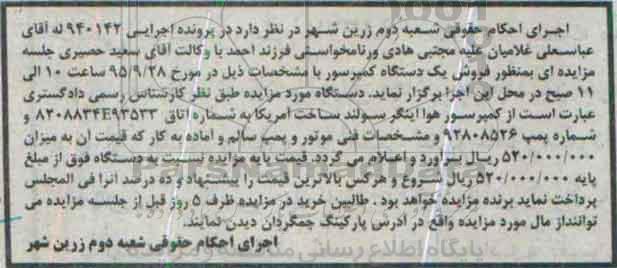 اجرای احکام حقوقی شعبه دوم زرین شهر در نظر دارد در پرونده اجرایی ۹۴۰۱۴۲ له آقای
عباسعلی غلامیان علیه مجتبی هادی ورنامخواستی فرزند احمد با وکالت آقای سعید حصیری جلسه
مزایده ای بمنظور فروش یک دستگاه کمپرسور با مشخصات ذیل در مورخ ۹۵/۹/۲۸ ساعت ۱۰ الی
۱۱ صبح در محل این اجرا برگزار نماید. دستگاه مورد مزایده طبق نظر کارشناس رسمی دادگستری
عبارت است از کمپرسور هوا اینگر سولند ساخت آمریکا به شماره اتاق ۸۲۰۸۸۳۴E۹۳۵۳۳ و
شماره پمپ ۹۲۸۰۸۵۲۶ و مشخصات فنی موتور و پمپ سالم و آماده به کار که قیمت آن به میزان
۵۲۰/۰۰۰/۰۰۰ ریال برآورد و اعلام می گردد. قیمت پایه مزایده نسبت به دستگاه فوق از مبلغ
پایه ۵۲۰/۰۰۰/۰۰۰ ریال شروع و هرکس بالاترین قیمت را پیشنهاد و ده درصد آنرا فی المجلس
پرداخت نماید برنده مزایده خواهد بود. طالبین خرید در مزایده ظرف ۵ روز قبل از جلسه مزایده می
توانند از مال مورد مزایده واقع در آدرس پارکینگ چمگردان دیدن نمایند.
اجرای احکام حقوقی شعبه دوم زرین شهر
پایگاه اطلاع رسانی مناقصه و مزایده